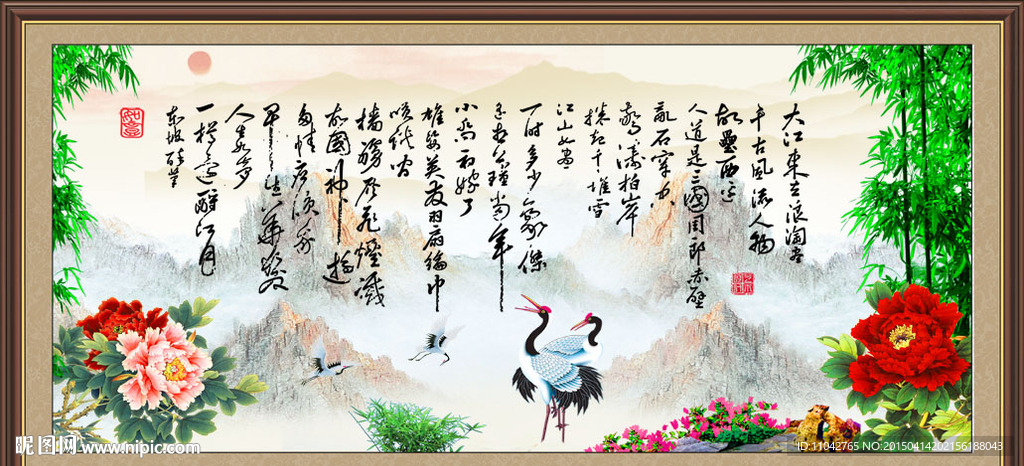 大江東去浪淘尽
千古風流人物
故壘西邊
人道是三國周郎赤壁
亂石穿空
驚濤拍岸
捲起千堆雪
江山如畫
一时多少豪傑
遙想公瑾當年
小喬初嫁了
雄姿英發羽扇綸巾
談笑間
檣艣灰飛煙滅
故國神遊
多情應笑我
早生華髮
人生如夢
一樽還酹江月
東坡醉筆
如意
昵图网 www.nipic.com
ID:11042765 NO:20150414202156188043